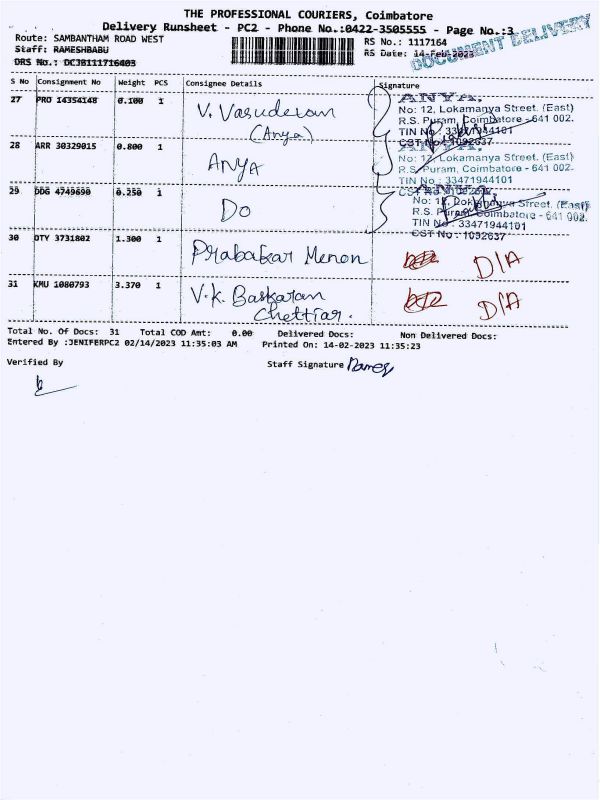 THE PROFESSIONAL COURIERS, Coimbatore
Delivery Runsheet - PC2 - Phone No.:0422-3505555 - Page No.:3
DOCUMENT DELIVERY
Route: SAMBANTHAM ROAD WEST RS No.: 1117164
Staff: RAMESHBABU RS Date: 14-Feb-2023
DRS No.: DCJB111716403
S No Consignment No Weight PCS Consignee Details Signature
27 PRO 14354148 0.100 1 V. Vasudevan
(Anya)
ANYA.
No: 12, Lokamanya Street. (East)
R.S. Puram, Coimbatore - 641 002.
TIN No : 33471944101
CST No : 1092637
28 ARR 30329015 0.800 1 ANYA
ANYA.
No: 12, Lokamanya Street. (East)
R.S. Puram, Coimbatore - 641 002.
TIN No : 33471944101
29 DDG 4749690 0.250 1 DO
ANYA.
No: 12, Lokamanya Street. (East)
R.S. Puram, Coimbatore - 641 002.
TIN No : 33471944101
CST No : 1092637
30 DTY 3731802 1.300 1 Prabakar Menon D/A
31 KMU 1080793 3.370 1 V.K. Baskaran
Chettiar. D/A
Total No. Of Docs: 31 Total COD Amt: 0.00 Delivered Docs: Non Delivered Docs:
Entered By :JENIFERPC2 02/14/2023 11:35:03 AM Printed On: 14-02-2023 11:35:23
Verified By Staff Signature